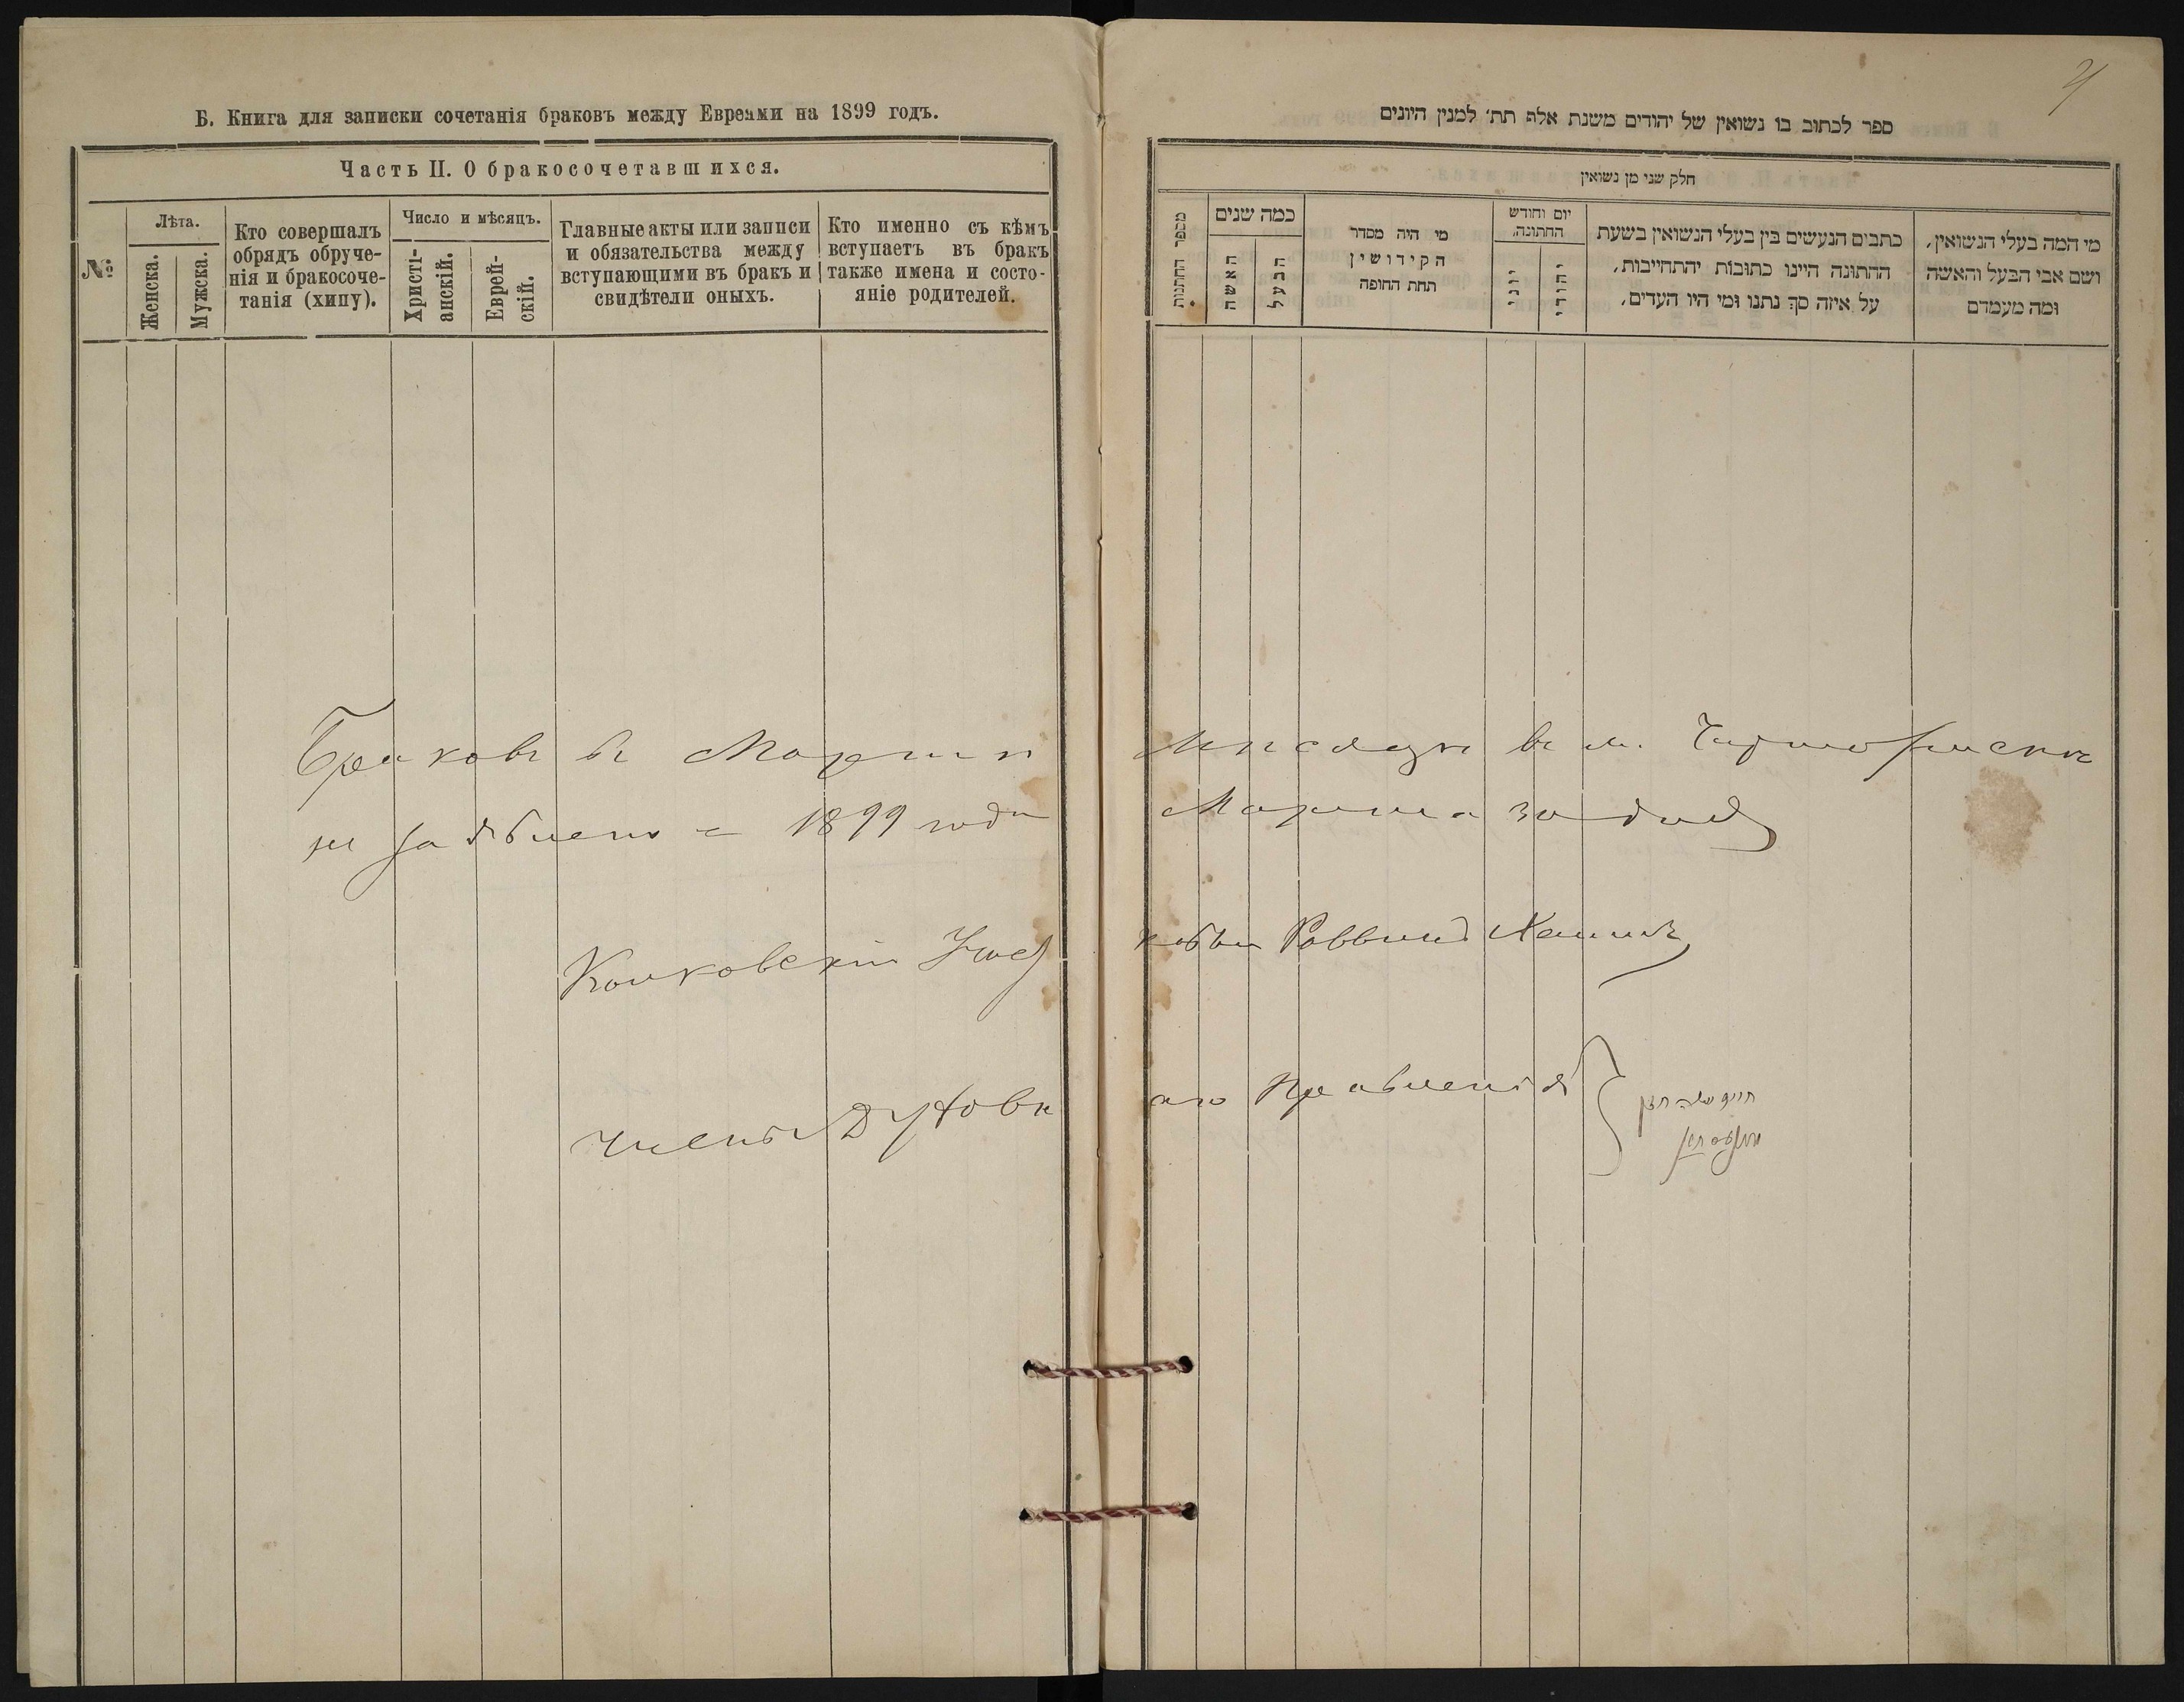 Б. Книга для записки сочетанія браковъ между Евреями на 1899 годъ.
Часть II. О бракосочетавшихся.
№
Лѣта.
Женска.
Мужска.
Кто совершалъ
обрядъ обруче-
нія и бракосоче-
танія (хипу).
Число и мѣсяцъ.
Христі-
анскій.
Еврей-
скій.
Главные акты или записи
и обязательства между
вступающими въ бракъ и
свидѣтели оныхъ.
Кто именно съ кѣмъ
вступаетъ въ бракъ
также имена и состо-
яніе родителей.
4
ספר לכתוב בו נשואין של יהודים משנת אלף תת׳ למנין היונים
חלק שני מן נשואין
מספר החתונות
כמה שנים
האשה
הבעל
מי היה מסדר
הקידושין
תחת החופה
יום וחודש
החתונה.
יוני
יהודי
כתבים הנעשים בין בעלי הנשואין בשעת
החתונה היינו כתובות יהתחייבות,
על איזה סך נתנו ומי היו העדים,
מי המה בעלי הנשואין,
ושם אבי הבעל והאשה
ומה מעמדם
Браковъ въ Мартѣ мѣсяцѣ въ м. Чарторискѣ
не заявлено 1899 года Марта 30 дня
Колковскій Раввинъ
Члены Духовнаго Правленія